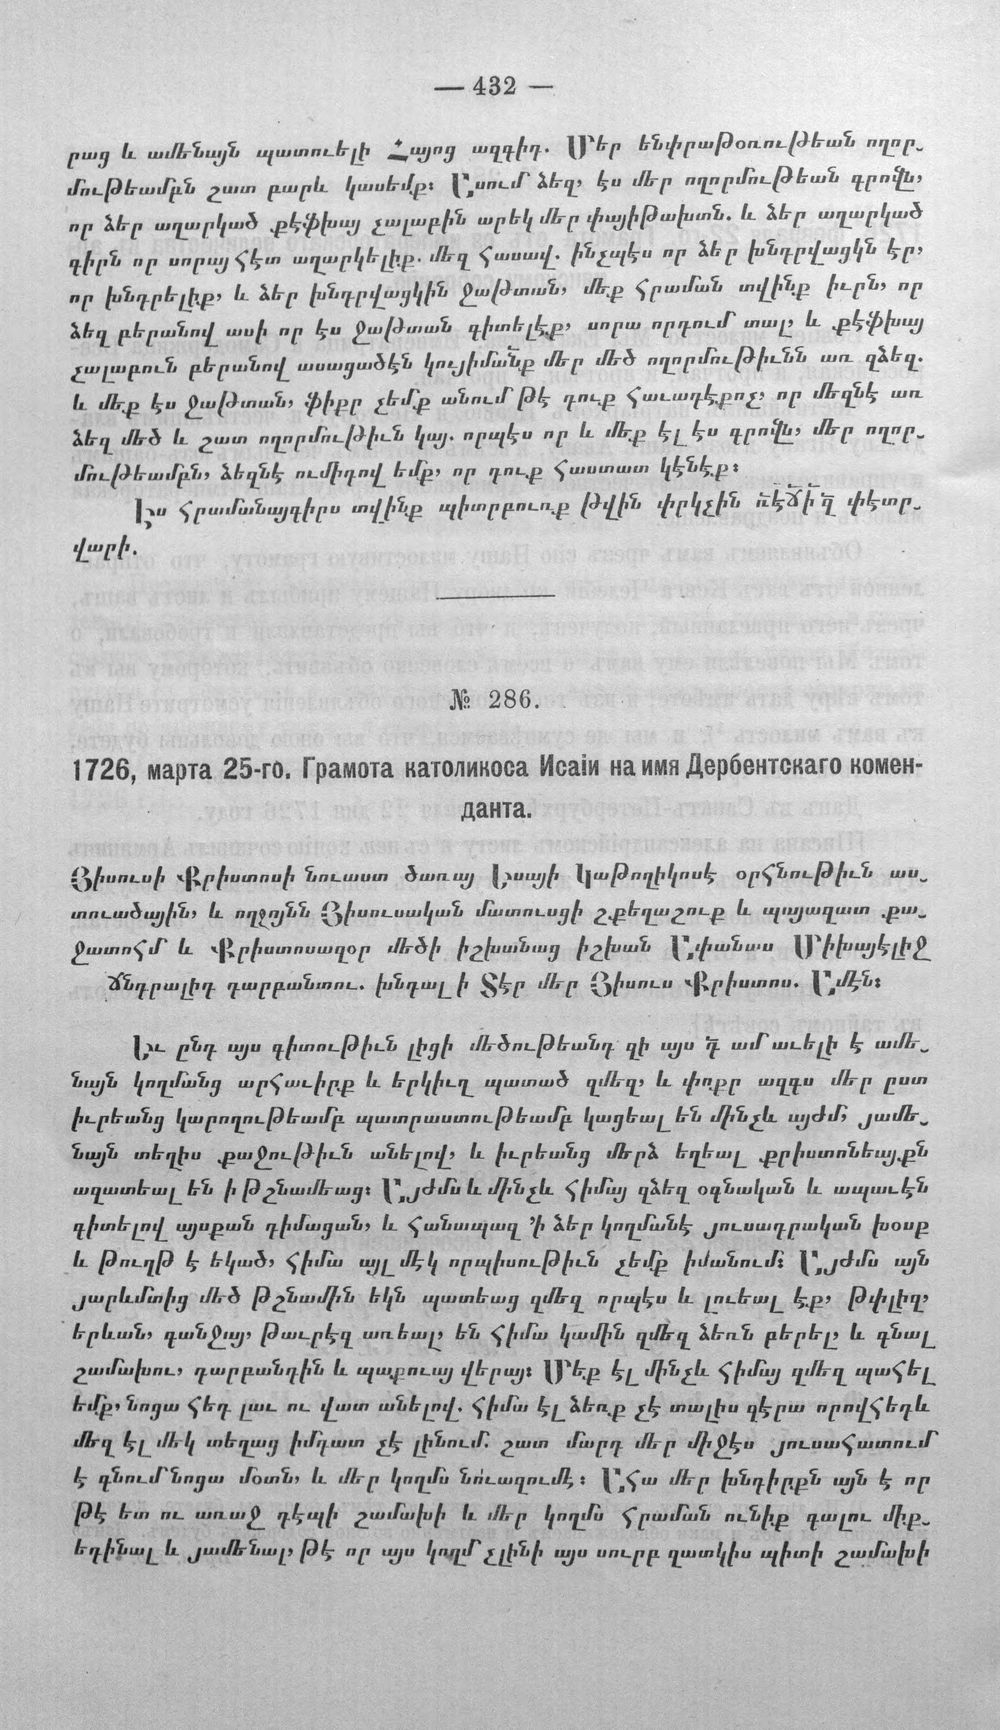 — 432 —
րաց և ամենայն պատուելի Հայոց ազգիդ. Մեր ենփրաթօռութեան ողոր֊
մութեամբն շատ բարև կասեմք։ Ըսում ձեզ, էս մեր ողորմութեան գրովն,
որ ձեր աղարկած քէֆխայ չալաբին արեկ մեր փայիթախտն. և ձեր աղարկած
գիրն որ սորայ հէտ աղարկելիք. մեզ հասավ. ինչպէս որ ձեր խնդրվացկն էր,
որ խնդրելիք, և ձեր խնդրվացկին ջաթտան, մեք հրաման տվինք իւրն, որ
ձեզ բերանով ասի որ էս ջաթտան գիտելէք, սորա որդում տալ, և քէֆխայ
չալաբուն բերանով ասացածէն կույիմանք մեր մեծ ողորմութիւնն առ զձեզ.
և մեք էս ջաթտան, ֆիքր չեմք անում թէ դուք հաւադէքոչ, որ մեզնէ առ
ձեզ մեծ և շատ ողորմութիւն կայ. որպէս որ և մեք էլ էս գրովն, մեր ողոր֊
մութեամբն, ձեզնէ ումիդով եմք, որ դուք հաստատ կէնէք։
Էս հրամանայգիրս տվինք պիտրբուռք թվին փրկչին ռէճիզ փէտր֊
վարի.
№ 286.
1726, марта 25-го. Грамота католикоса Исаіи на имя Дербентскаго комен-
данта.
Յիսուսի Քրիստոսի նուաստ ծառայ Էսայի Կաթողիկոսէ օրհնութիւն աս֊
տուածային, և ողջոյնն Յիսուսական մատուսցի շքեղաշուք և պայազատ քա֊
ջատոհմ և Քրիստոսազօր մեծի իշխանաց իշխան Ըփանաս Միխայէլիջ
ճնդրալիդ դարբանտու. խնդալ ի Տէր մեր Յիսուս Քրիստոս. Ըմէն։
Եւ ընդ այս գիտութիւն լիցի մեծութեանդ զի այս դ ամ աւելի է ամե֊
նայն կողմանց արհաւիրք և երկիւղ պատած զմեզ, և փոքր ազգս մեր ըստ
իւրեանց կարողութեամբ պատրաստութեամբ կացեալ են մինչև այժմ, յամե֊
նայն տեղիս քաջութիւն անելով, և իւրեանց մերձ եղեալ քրիստոնեայքն
ազատեալ են ի թշնամեաց։ Ըյժմս և մինչև հիմայ զձեզ օգնական և ապաւէն
գիտելով այսքան դիմացան, և հանապազ ՚ի ձեր կողմանէ յուսադրական խօսք
և թուղթ է եկած, հիմա այլ մէկ որպիսութիւն չեմք իմանում։ Ըյժմս այն
յարևմտից մեծ թշնամին եկն պատեաց զմեզ որպէս և լուեալ էք, Թփլիզ,
երևան, գանջայ, թաւրէզ առեալ, են հիմա կամին զմեզ ձեռն բերել, և գնալ
շամախու, դարբանդին և պաքուայ վերայ։ Մեք էլ մինչև հիմայ զմեզ պահել
եմք, նոցա հեդ լաւ ու վատ անելով. հիմա էլ ձեռք չէ տալիս զէրա որովհեդև
մեզ էլ մեկ տեղաց իմդատ չէ լինում. շատ մարդ մեր միջէս յուսահատում
է գնում նոցա մօտն, և մեր կողմն նուազումէ։ Ըհա մեր խնդիրքն այն է որ
թէ ետ ու առաջ դէպի շամախի և մեր կողմն հրաման ունիք գալու միք֊
եդինալ և յամենալ, թէ որ այս կողմ չլինի այս սուրբ զատկիս պիտի շամախի